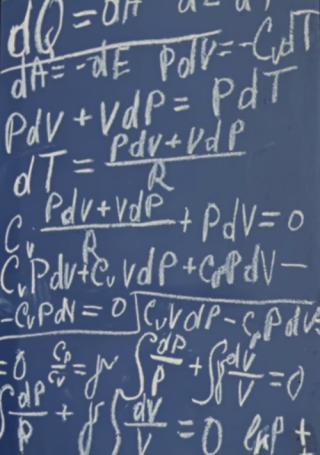 dQ = dA
dA = -dE PdV = -CvdT
PdV + VdP = PdT
dT = PdV + VdP / R
Cv PdV + VdP / R + PdV = 0
CvPdV + CvVdP + CpPdV -
-CvPdV = 0 CvVdP - CpPdV
= 0 Cp/Cv = γ ∫dP/P + ∫γdV/V = 0
∫dP/P + γ∫dV/V = 0 lnP +